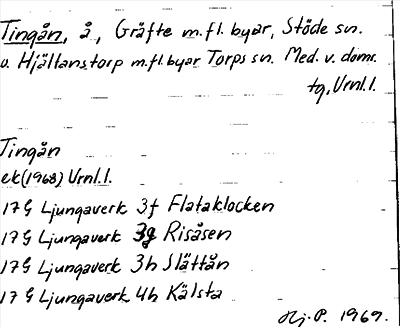 Tingån, å, Gräfte m.fl. byar, Stöde sn.
o. Hjältanstorp m.fl. byar Torps sn. Med. v. doms.
tg, Vrnl.l.
Tingån
ek (1968) Vrnl.l.
17 G Ljungaverk 3f Flataklocken
17 G Ljungaverk 3g Risåsen
17 G Ljungaverk 3h Slättån
17 G Ljungaverk 4h Kälsta
Hj. P. 1969.